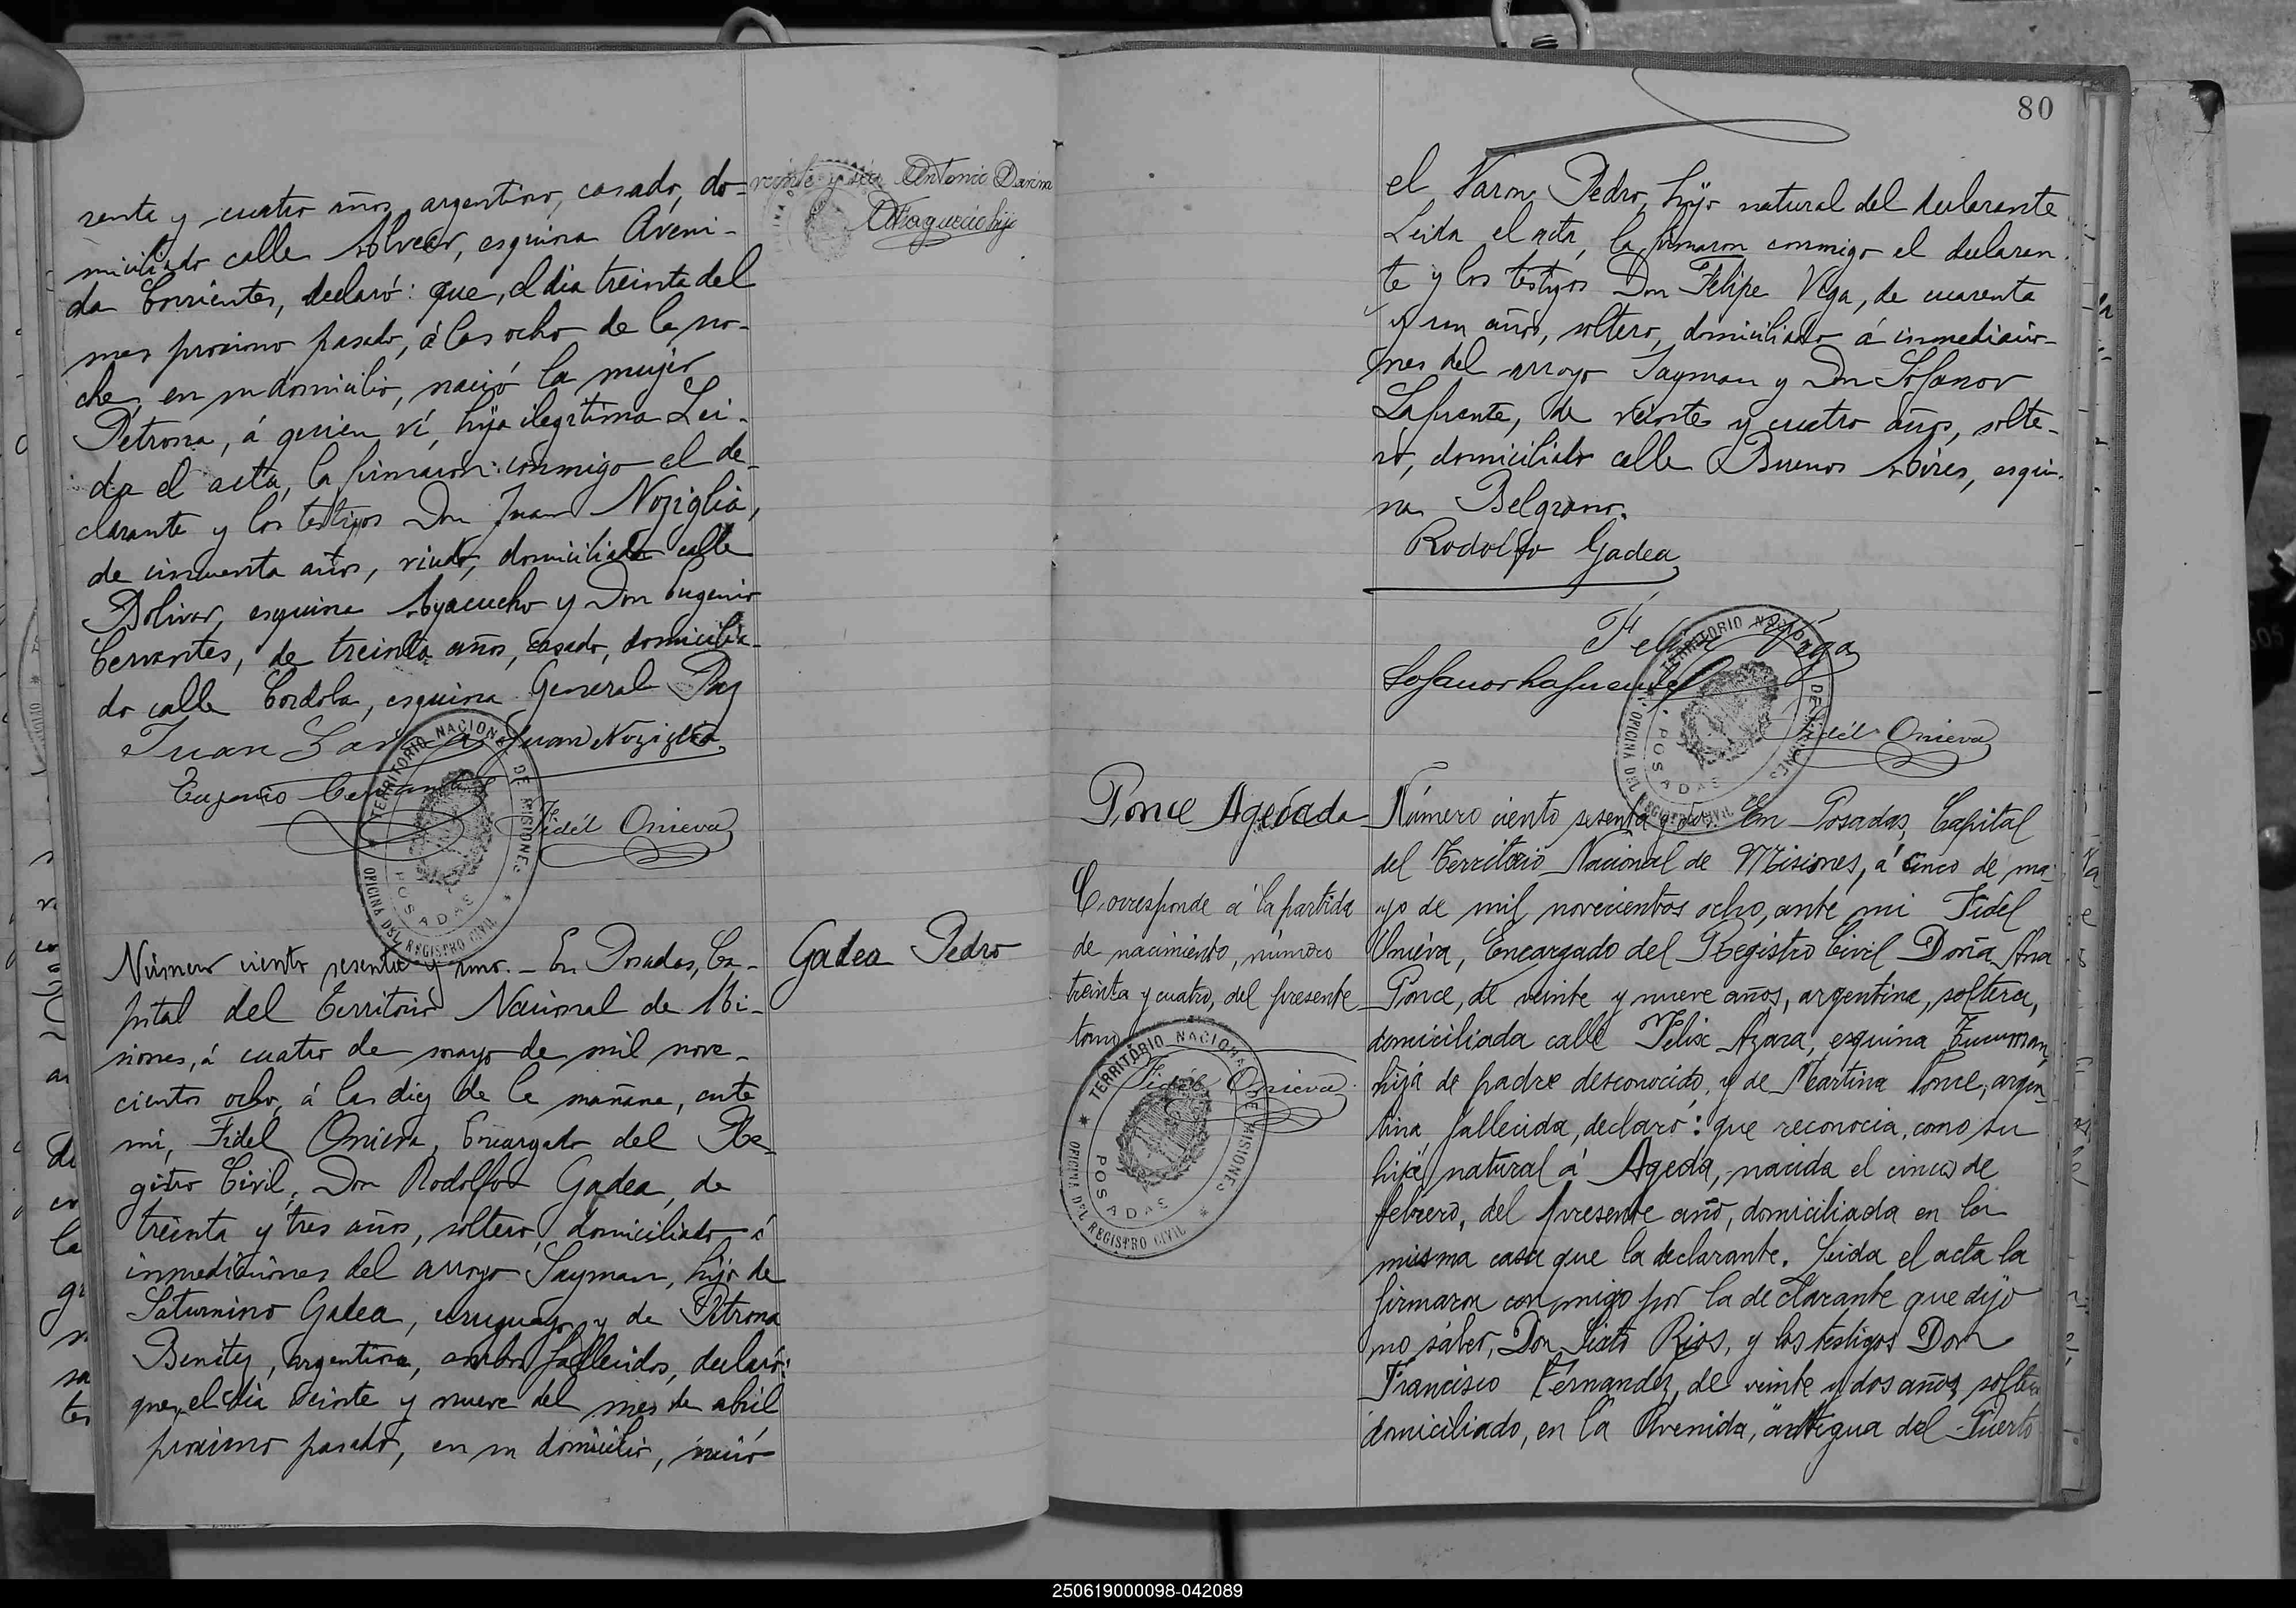 renta y cuatro años, argentino, casado, do-
miciliado calle Alvear, esquina Aveni-
da Corrientes, declaró: que, el dia treinta del
mes proximo pasado, á las ocho de la no-
che, en su domicilio, nació la mujer
Petrona, á quien ví, hija ilegitima Lei-
da el acta, la firmaron conmigo el de-
clarante y los testigos Don Juan Noziglia,
de cincuenta años, viudo, domiciliado calle
Bolivar, esquina Ayacucho y Don Eugenio
Cervantes, de treinta años, casado, domicilia-
do calle Cordoba, esquina General Paz
Juan Juan Noziglia
Eugenio Cervantes
Fidél Onieva
TERRITORIO NACIONAL DE MISIONES
POSADAS
OFICINA DEL REGISTRO CIVIL
veinte y seis Antonio
Número ciento sesenta y uno. - En Posadas, Ca-
pital del Territorio Nacional de Mi-
siones, á cuatro de mayo de mil nove-
cientos ocho, á las diez de la mañana, ante
mi, Fidel Onieva, Encargado del Re-
gistro Civil, Don Rodolfo Gadea, de
treinta y tres años, soltero, domiciliado á
inmediaciones del arroyo Sayman, hijo de
Saturnino Gadea, uruguayo y de Petrona
Benitez, argentina, ambos fallecidos, declaró:
que, el dia veinte y nueve del mes de abril
proximo pasado, en su domicilio, nació
Gadea Pedro
80
el Varon Pedro, hijo natural del declarante
Leida el acta, la firmaron conmigo el declaran-
te y los testigos Don Felipe Vega, de cuarenta
y un años, soltero, domiciliado á inmediacio-
nes del arroyo Sayman y Don Sofanor
Lafuente, de veinte y cuatro años, solte-
ro, domiciliado calle Buenos Aires, esqui-
na Belgrano.
Rodolfo Gadea
Felipe Vega
Sofanor Lafuente
Fidél Onieva
TERRITORIO NACIONAL DE MISIONES
POSADAS
OFICINA DEL REGISTRO CIVIL
Ponce Agedada
Corresponde á la partida
de nacimiento, número
treinta y cuatro, del presente
tomo
Fidél Onieva
TERRITORIO NACIONAL DE MISIONES
POSADAS
OFICINA DEL REGISTRO CIVIL
Número ciento sesenta y dos. En Posadas, Capital
del Territorio Nacional de Misiones, á cinco de ma-
yo de mil novecientos ocho, ante mi Fidel
Oniéva, Encargado del Registro Civil Doña Ana
Ponce, de veinte y nueve años, argentina, soltera,
domiciliada calle Felix Azara, esquina Tucuman,
hija de padre desconocido, y de Martina Ponce, argen-
tina, fallecida, declaró: que reconocia, como su
hija natural á Ageda, nacida el cinco de
febrero, del presente año, domiciliada en la
misma casa que la declarante. Leida el acta la
firmaron conmigo por la declarante que dijo
no saber, Don Sixto Rios, y los testigos Don
Francisco Fernandez, de veinte y dos años, soltero
domiciliado, en la Avenida, antigua del Puerto
250619000098-042089